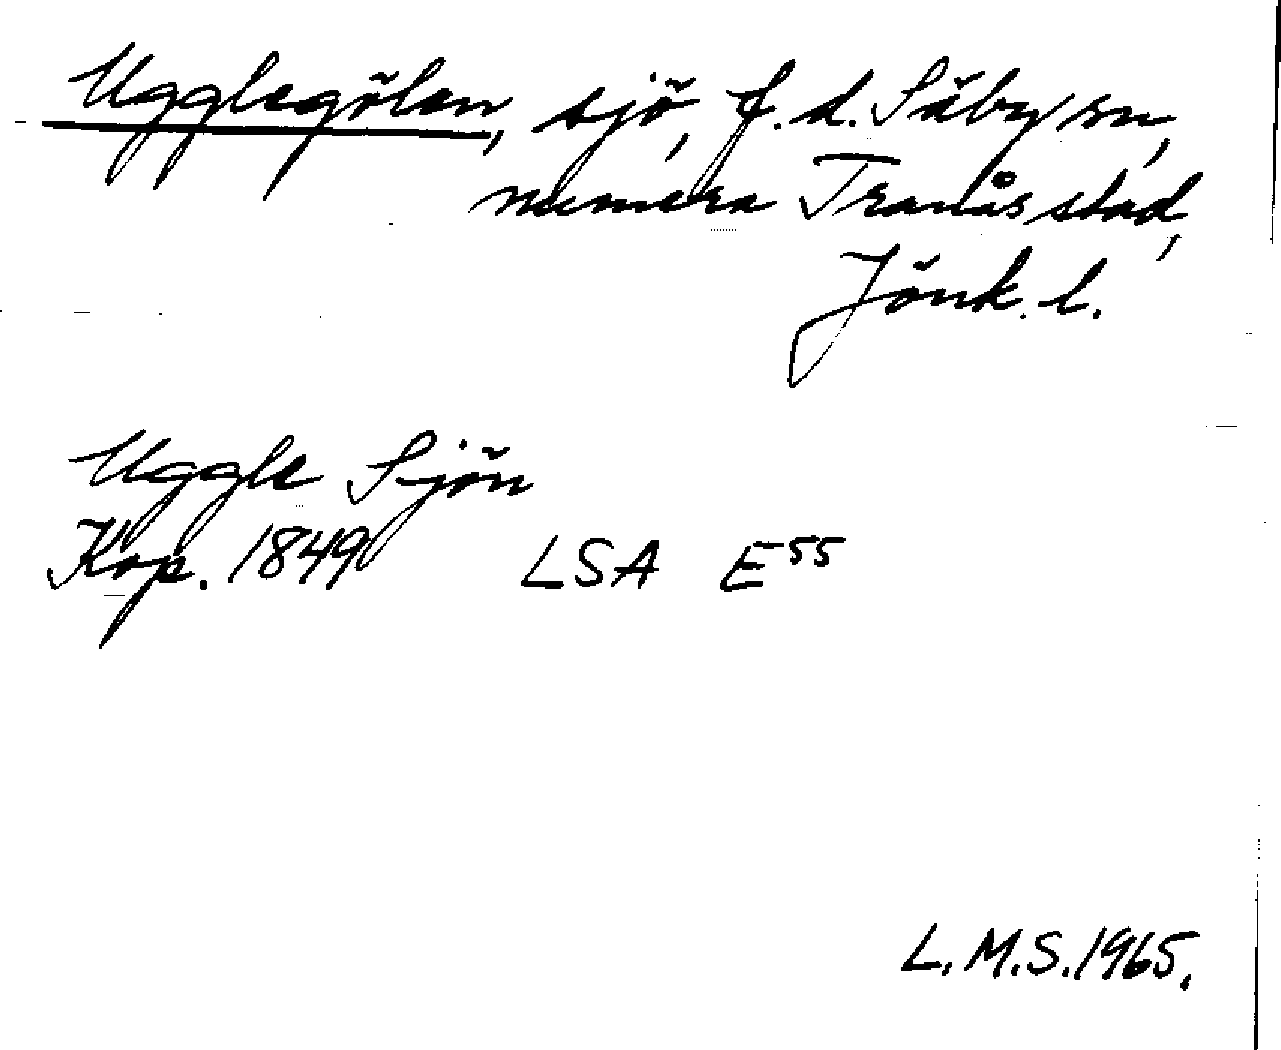 Ugglegölen, sjö, f.d. Säby sn,
numera Tranås stad,
Jönk. l.
Uggle Sjön
Kop. 1849 LSA E55
L.M.S. 1965.